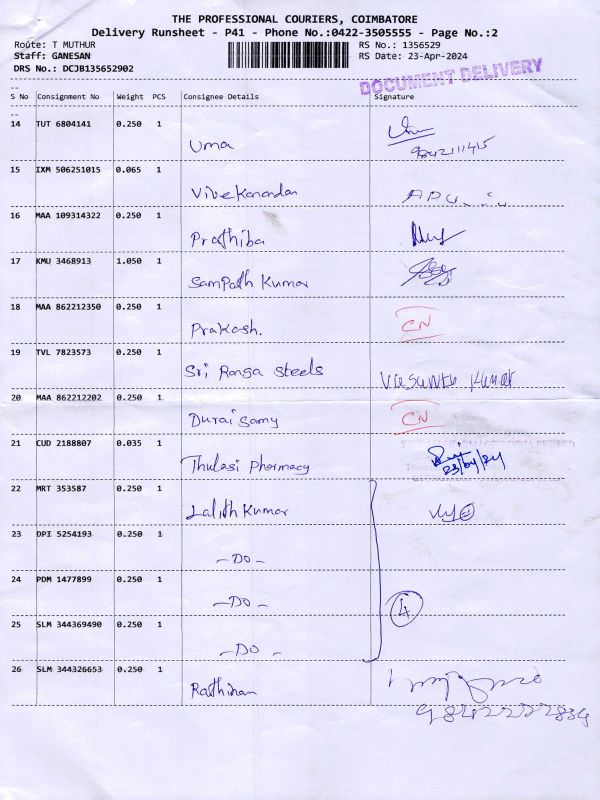 THE PROFESSIONAL COURIERS, COIMBATORE
Delivery Runsheet - P41 - Phone No.:0422-3505555 - Page No.:2
Route: T MUTHUR RS No.: 1356529
Staff: GANESAN RS Date: 23-Apr-2024
DRS No.: DCJB135652902
DOCUMENT DELIVERY
S No Consignment No Weight PCS Consignee Details Signature
14 TUT 6804141 0.250 1
Uma
9842111415
15 IXM 506251015 0.065 1
Vivekanandan
16 MAA 109314322 0.250 1
Prathiba
17 KMU 3468913 1.050 1
Sampath Kumar
18 MAA 862212350 0.250 1
Prakash. CN
19 TVL 7823573 0.250 1
Sri Ranga Steels Vasantha Kumar
20 MAA 862212202 0.250 1
Durai Samy CN
21 CUD 2188807 0.035 1
Thulasi Pharmacy 23/04/24
22 MRT 353587 0.250 1
Lalith Kumar
23 DPI 5254193 0.250 1
- DO -
24 PDM 1477899 0.250 1
- DO - 4
25 SLM 344369490 0.250 1
- DO -
26 SLM 344326653 0.250 1
Rathinam
9842222834